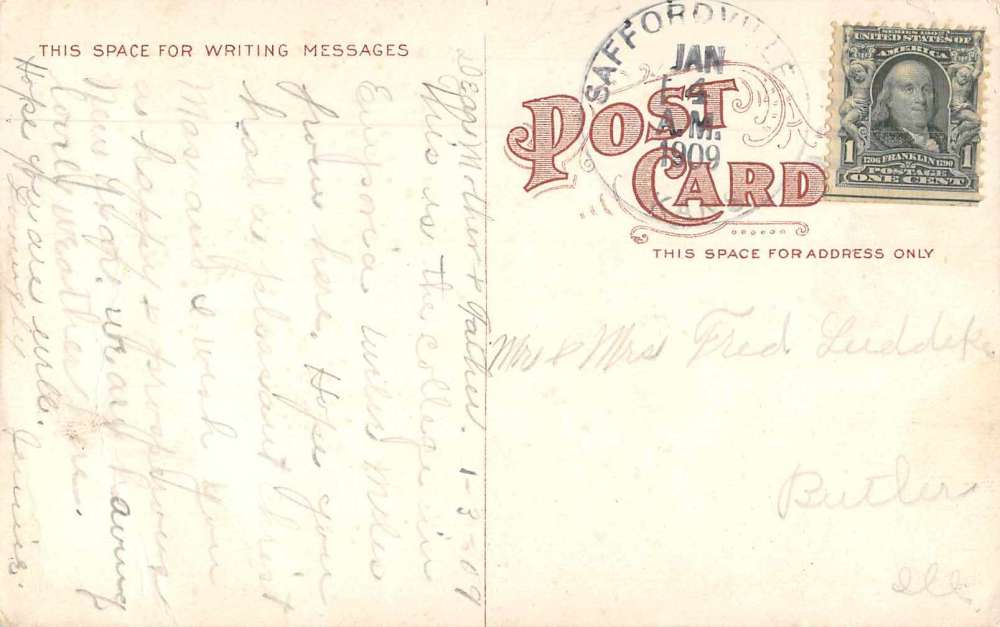 THIS SPACE FOR WRITING MESSAGES
Dear Mother & Father. 1-3-09
This is the college in
Emporia miles
from here. Hope you
had a plesant Christ
Mas and I wish you
a happy & prosperous
New Year. We are having
weather here.
Hope you are well.
SAFFORDVILLE
JAN
4
A.M.
1909
KANS
POST
CARD
SERIES 1902
UNITED STATES OF
AMERICA
1706 FRANKLIN 1790
1 POSTAGE 1
ONE CENT
THIS SPACE FOR ADDRESS ONLY
Mr & Mrs Fred Luddeke
Butler
Ill